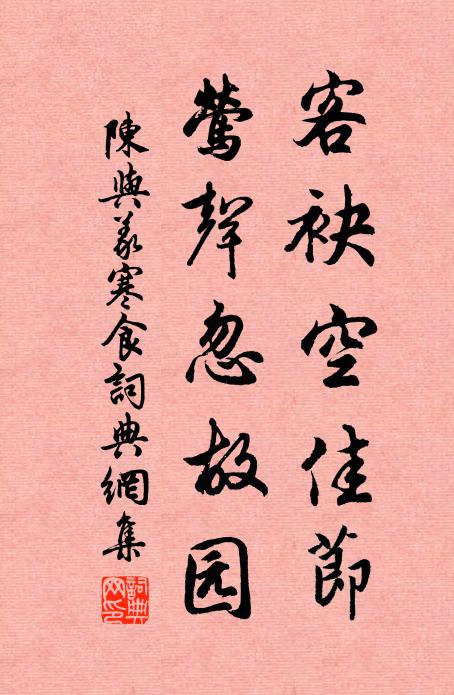 客袂空佳節
鶯聲忽故园
陳與義寒食詞典網集
詞典网印